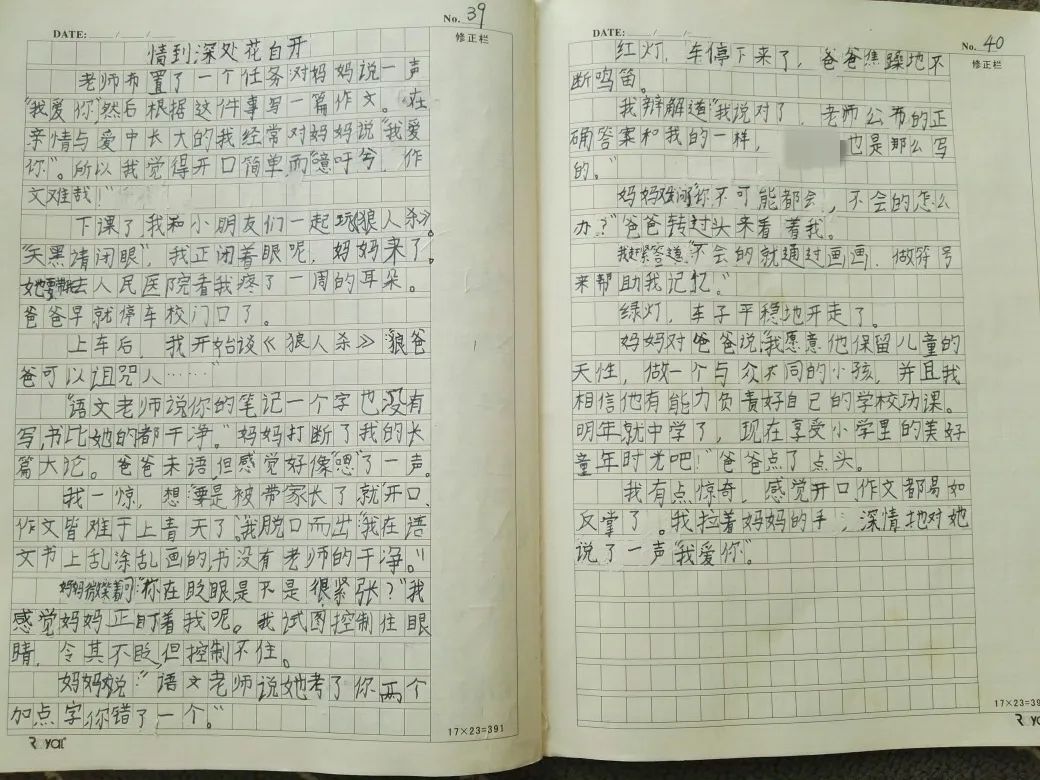 No. 39
DATE: / /
修正栏
情到深处花自开
老师布置了一个任务对妈妈说一声
"我爱你"然后根据这件事写一篇作文。在
亲情与爱中长大的我经常对妈妈说"我爱
你"。所以我觉得开口简单,而"噫吁兮,作
文难哉!"
下课了,我和小朋友们一起玩《狼人杀》。
"天黑请闭眼",我正闭着眼呢,妈妈来了。
她要带我去人民医院看我疼了一周的耳朵。
爸爸早就停车校门口了。
上车后,我开始谈《狼人杀》"狼爸
爸可以诅咒人……"
"语文老师说你的笔记一个字也没有
写,书比她的都干净。"妈妈打断了我的长
篇大论。爸爸未语,但感觉好像"嗯"了一声。
我一惊,想"要是被带家长了,就"开口、
作文皆难于上青天了。"我脱口而出"我在语
文书上乱涂乱画的,书没有老师的干净。"
妈妈微笑着问:"你在眨眼是不是很紧张?"我
感觉妈妈正盯着我呢。我试图控制住眼
睛,令其不眨,但控制不住。
妈妈又说:"语文老师说她考了你两个
加点字你错了一个。"
17×23=391
Royal
DATE: / /
No. 40
修正栏
红灯,车停下来了,爸爸焦躁地不
断鸣笛。
我辩解道"我说对了,老师公布的正
确答案和我的一样,
也是那么写
的。"
妈妈又问"你不可能都会,不会的怎么
办?"爸爸转过头来看着我。
我赶紧答道"不会的就通过画画、做符号
来帮助我记忆。"
绿灯,车子平稳地开走了。
妈妈对爸爸说"我愿意他保留儿童的
天性,做一个与众不同的小孩,并且我
相信他有能力负责好自己的学校功课。
明年就中学了,现在享受小学里的美好
童年时光吧!"爸爸点了点头。
我有点惊奇,感觉开口作文都易如
反掌了。我拉着妈妈的手,深情地对她
说了一声"我爱你"。
17×23=39
Royal